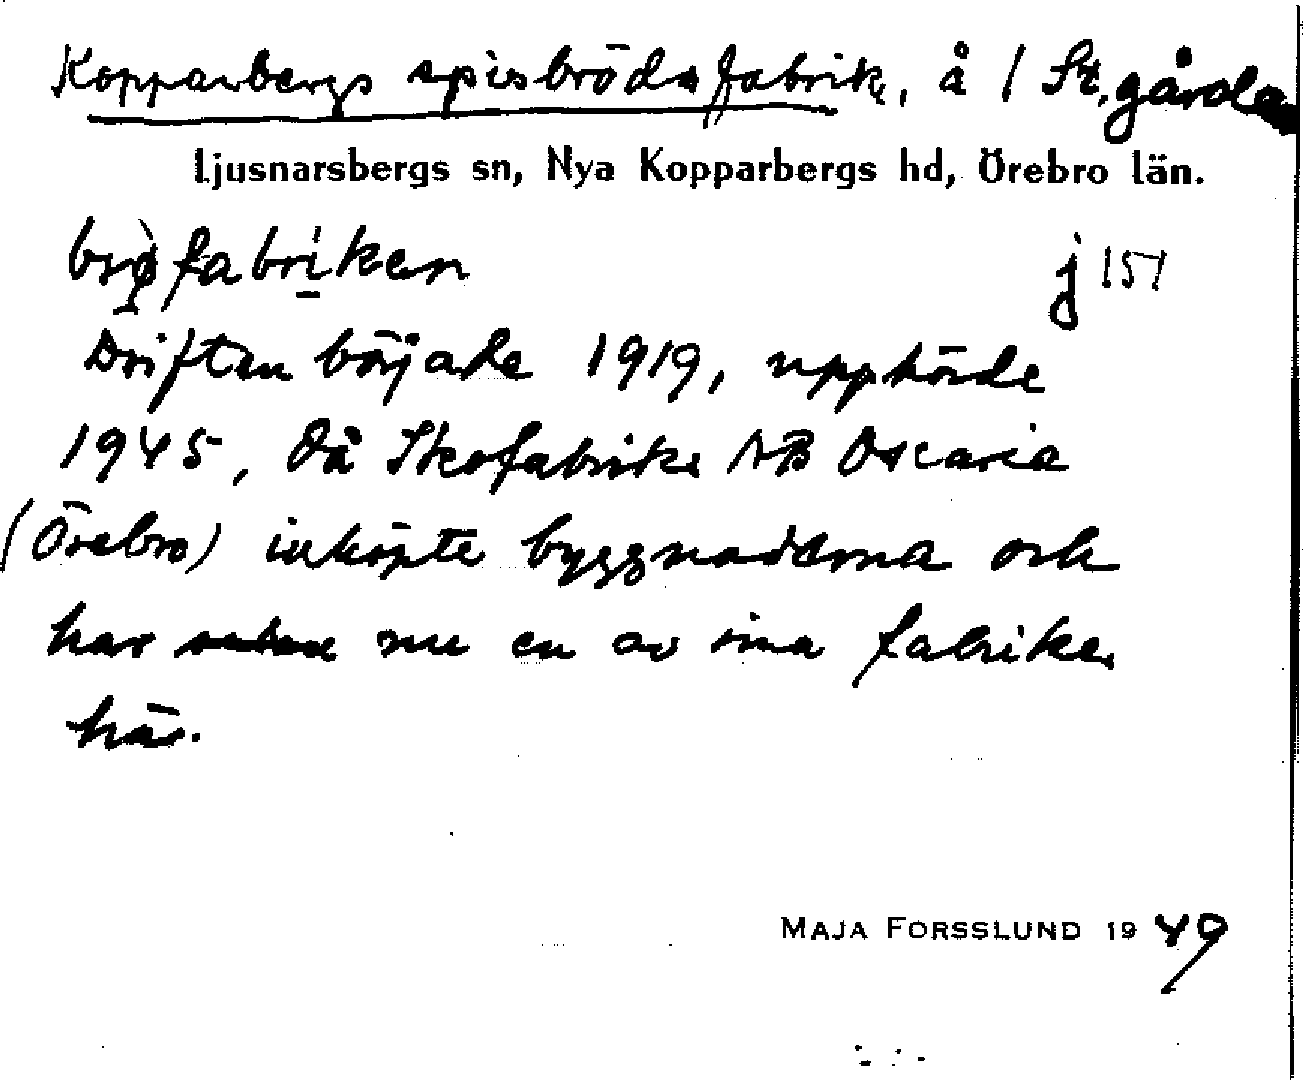 Kopparbergs spisbrödsfabrik, å 1 St. gårda
Ljusnarsbergs sn, Nya Kopparbergs hd, Örebro län.
brø̀fabrìken j 151
Driften började 1919, upphörde
1945, då Skofabriks AB Oscaria
(Örebro) inköpte byggnaderna och
har nu en av sina fabriker
här.
MAJA FORSSLUND 1949